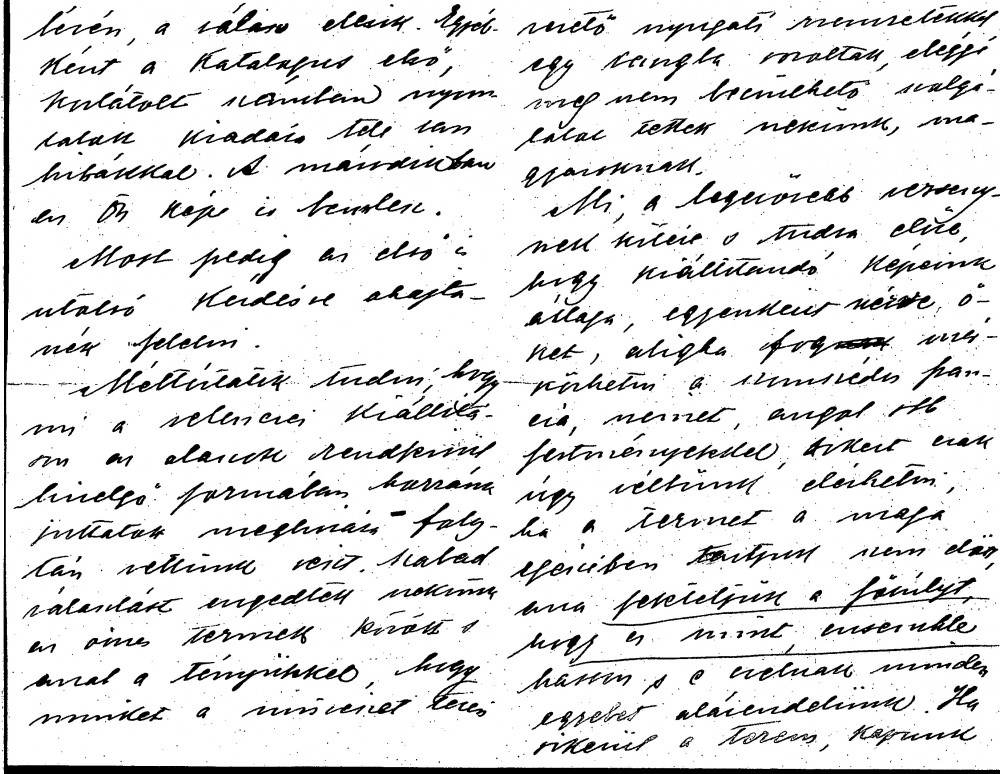 térén, a válasz elesik. Egyéb-
ként a Katalogus első,
korlátolt számban nyom
tatott kiadása tele van
hibákkal. A másodikban
az Ön képe is benn lesz.
Most pedig az első s
utolsó kérdésre óhajta-
nék felelni.
Méltóztatik tudni, hogy
mi a velencei kiállítá-
son az olaszok rendkívül
hizelgő formában hozzánk
juttatott meghívása foly-
tán vettünk részt. Szabad
választást engedtek nekünk
az összes termek között s
azzal a tényükkel, hogy
minket a művészet terén
vezető nyugati nemzetekkel
egy rangba vontak, eléggé
meg nem becsülhető szolgá-
latot tettek nekünk, ma-
gyaroknak.
Mi, a legerősebb verseny-
nek kitéve s tudva előre,
hogy kiállítandó képeink
átlaga, egyenként nézve ő-
ket, aligha fog mér-
kőzhetni a szomszédos fran-
cia, német, angol stb
festményekkel, sikert csak
úgy véltünk elérhetni,
ha a termet a maga
egészében tartjuk szem előtt,
arra fektetjük a fősúlyt,
hogy ez mint ensemble
hasson, s e célnak minden
egyebet alárendelünk. Ha
sikerül a terem, kapunk